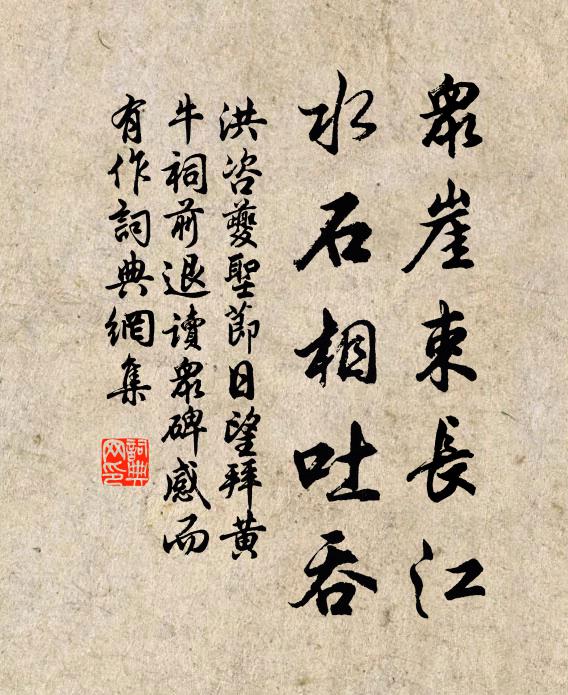 眾崖束長江
水石相吐吞
洪咨夔聖節日望拜黃
牛祠前退讀眾碑感而
有作詞典網集
詞典
网印